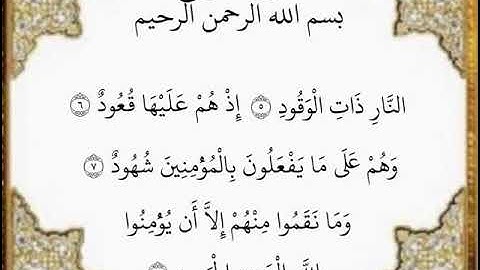 بسم الله الرحمن الرحيم
النَّارِ ذَاتِ الْوَقُودِ ۝٥ إِذْ هُمْ عَلَيْهَا قُعُودٌ ۝٦
وَهُمْ عَلَى مَا يَفْعَلُونَ بِالْمُؤْمِنِينَ شُهُودٌ ۝٧
وَمَا نَقَمُوا مِنْهُمْ إِلاَّ أَن يُؤْمِنُوا